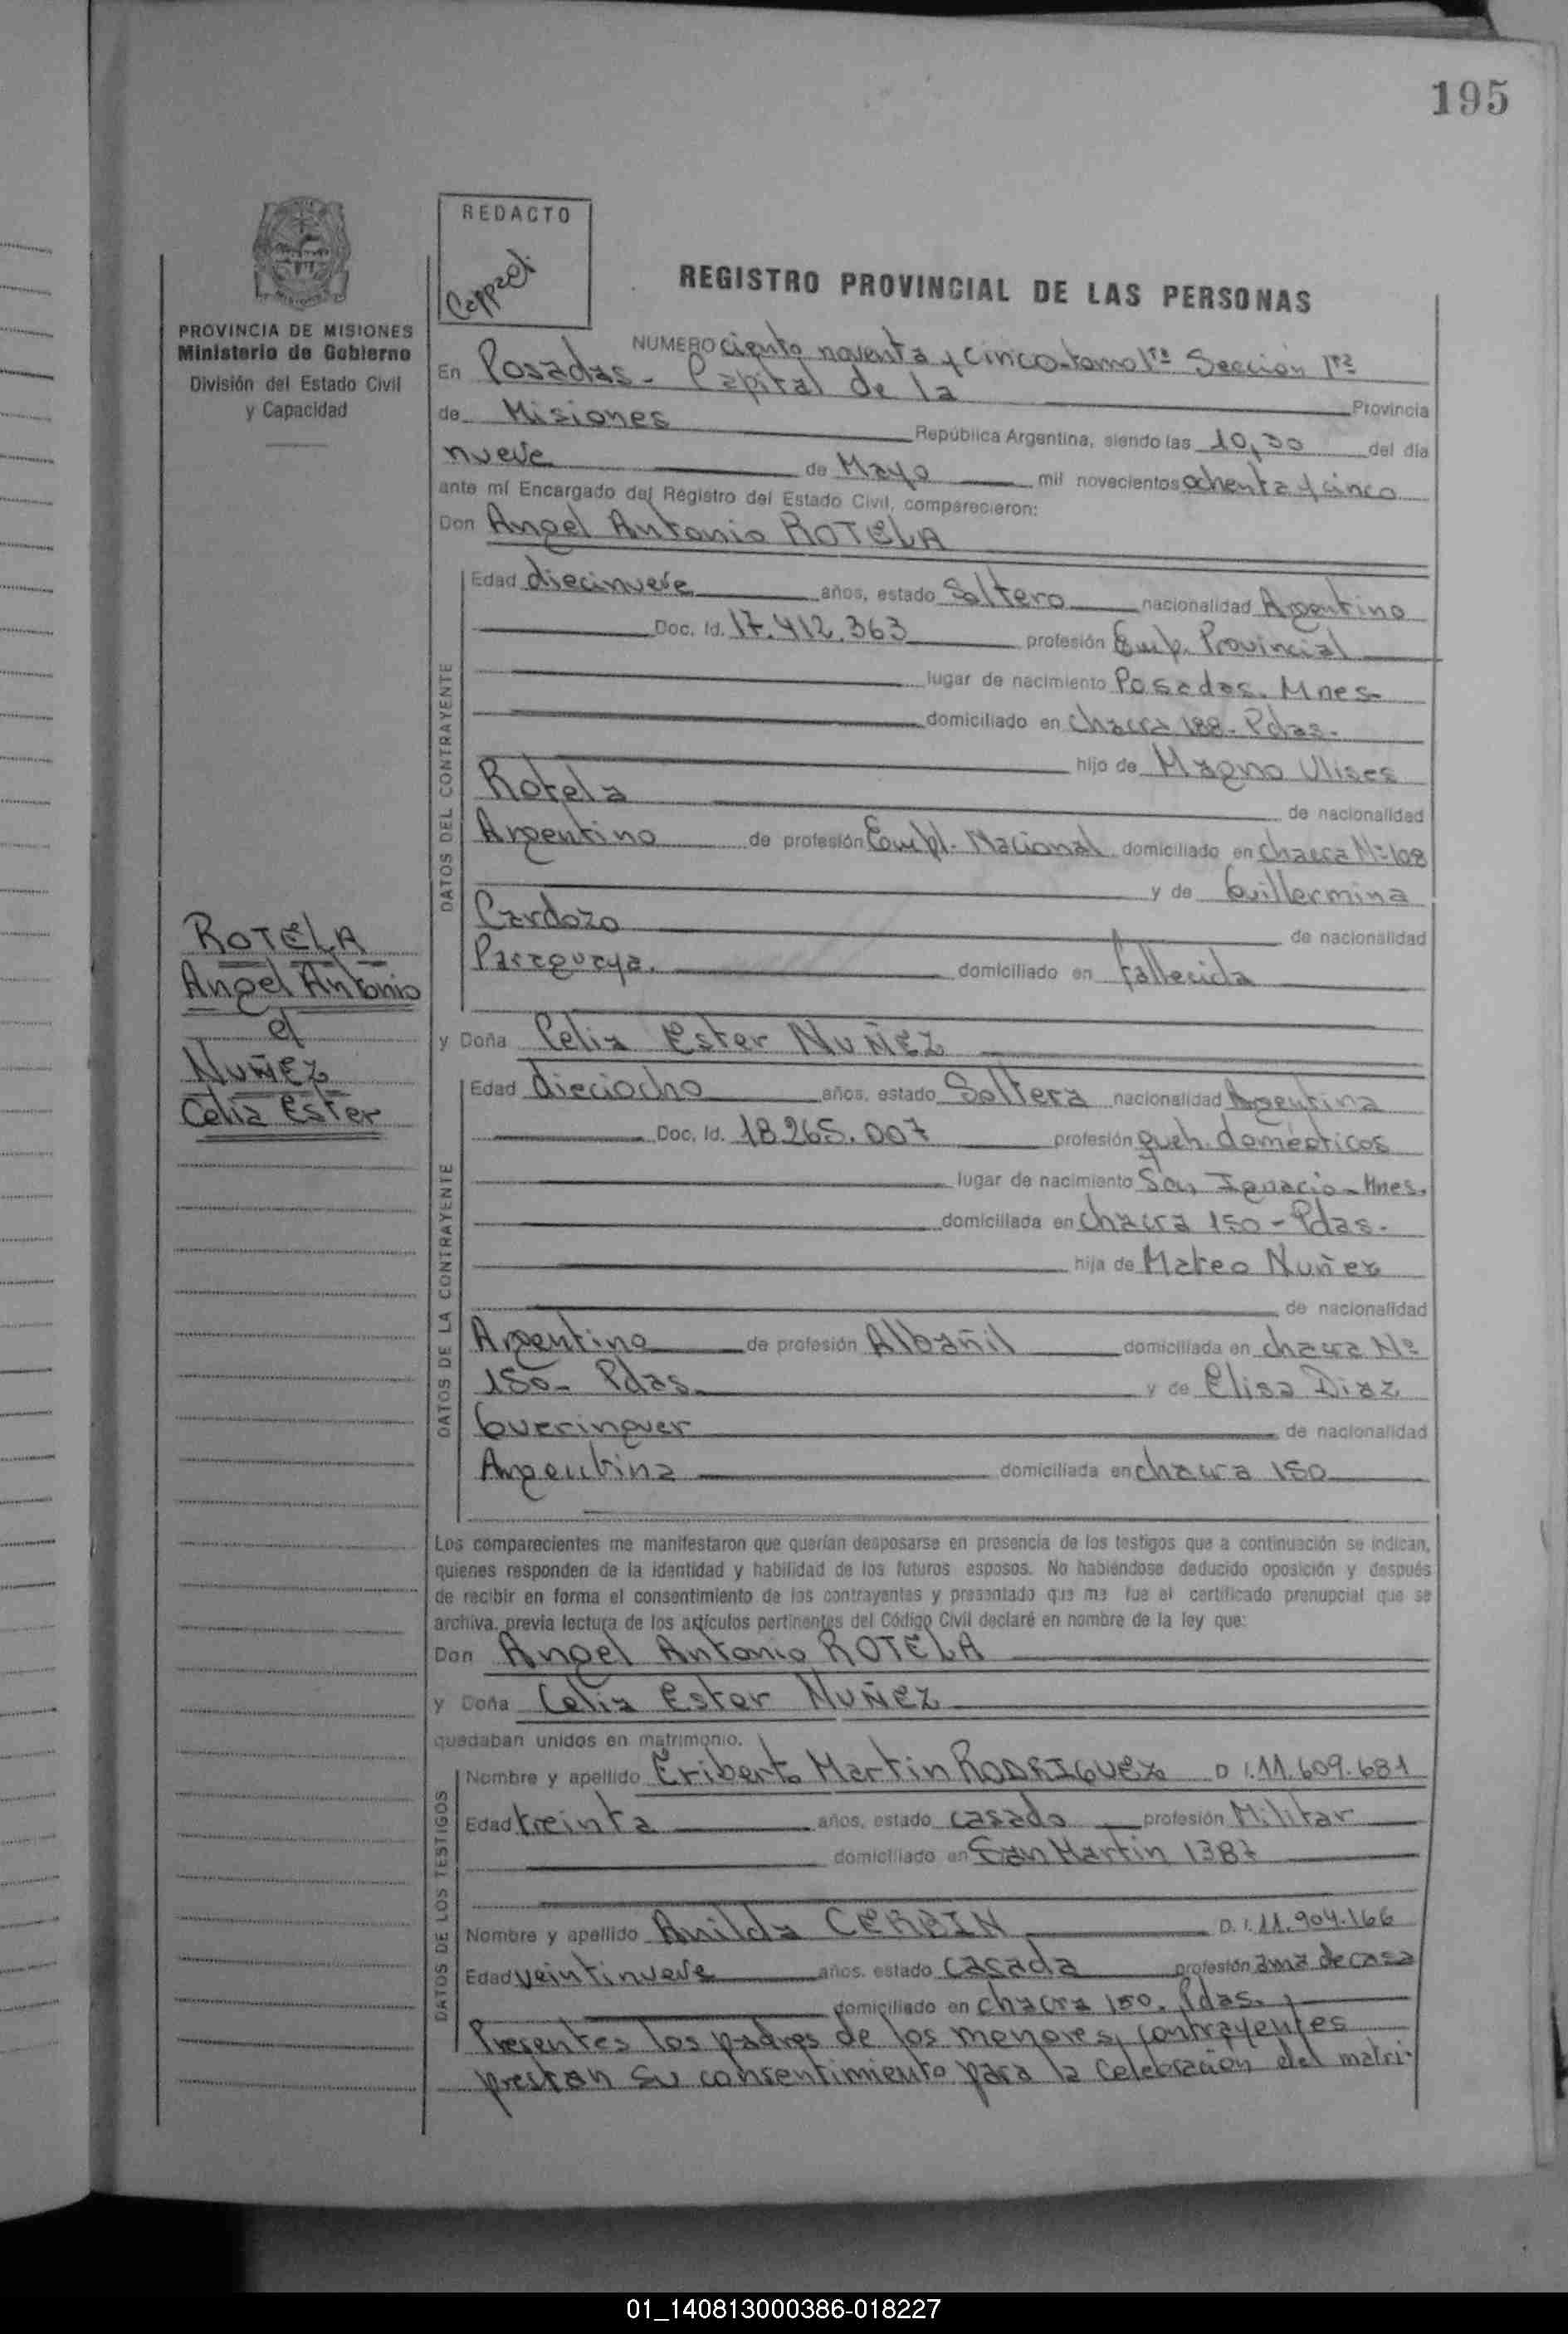 195
REDACTO
REGISTRO PROVINCIAL DE LAS PERSONAS
PROVINCIA DE MISIONES
Ministerio de Gobierno
División del Estado Civil
y Capacidad
NUMERO ciento noventa y cinco-tomo 1ro Sección 1ra
En Posadas - Capital de la Provincia
de Misiones República Argentina, siendo las 10,30 del día
nueve de Mayo mil novecientos ochenta y cinco
ante mí Encargado del Registro del Estado Civil, comparecieron:
Don Angel Antonio ROTELA
DATOS DEL CONTRAYENTE
Edad diecinueve años, estado Soltero nacionalidad Argentino
Doc. Id. 17.412.363 profesión Emp. Provincial
lugar de nacimiento Posadas. Mnes-
domiciliado en chacra 188- Pdas-
hijo de Magno Ulises
Rotela de nacionalidad
Argentino de profesión Empl. Nacional domiciliado en chacra Nº 108
y de Guillermina
Cardozo de nacionalidad
Paraguaya. domiciliado en fallecida
ROTELA
Angel Antonio
el
NUÑEZ
Celia Ester
y Doña Celia Ester NUÑEZ
DATOS DE LA CONTRAYENTE
Edad dieciocho años, estado Soltera nacionalidad Argentina
Doc. Id. 18.265.007 profesión queh. domésticos
lugar de nacimiento San Ignacio - Mnes.
domiciliada en chacra 150 - Pdas-
hija de Mateo Nuñez
de nacionalidad
Argentino de profesión Albañil domiciliada en chacra Nº
150- Pdas. y de Elisa Diaz
Gueringuer de nacionalidad
Argentina domiciliada en chacra 150
Los comparecientes me manifestaron que querían desposarse en presencia de los testigos que a continuación se indican,
quienes responden de la identidad y habilidad de los futuros esposos. No habiéndose deducido oposición y después
de recibir en forma el consentimiento de los contrayentes y presentado que me fue el certificado prenupcial que se
archiva, previa lectura de los artículos pertinentes del Código Civil declaré en nombre de la ley que:
Don Angel Antonio ROTELA
y Doña Celia Ester NUÑEZ
quedaban unidos en matrimonio.
DATOS DE LOS TESTIGOS
Nombre y apellido Eriberto Martin RODRIGUEZ D.I. 11.609.681
Edad treinta años, estado casado profesión Militar
domiciliado en San Martin 1387
Nombre y apellido Anilda CERBIN D.I. 11.904.166
Edad veintinueve años, estado casada profesión ama de casa
domiciliado en chacra 150. Pdas.
Presentes los padres de los menores contrayentes
prestan su consentimiento para la celebración del matri-
01_140813000386-018227